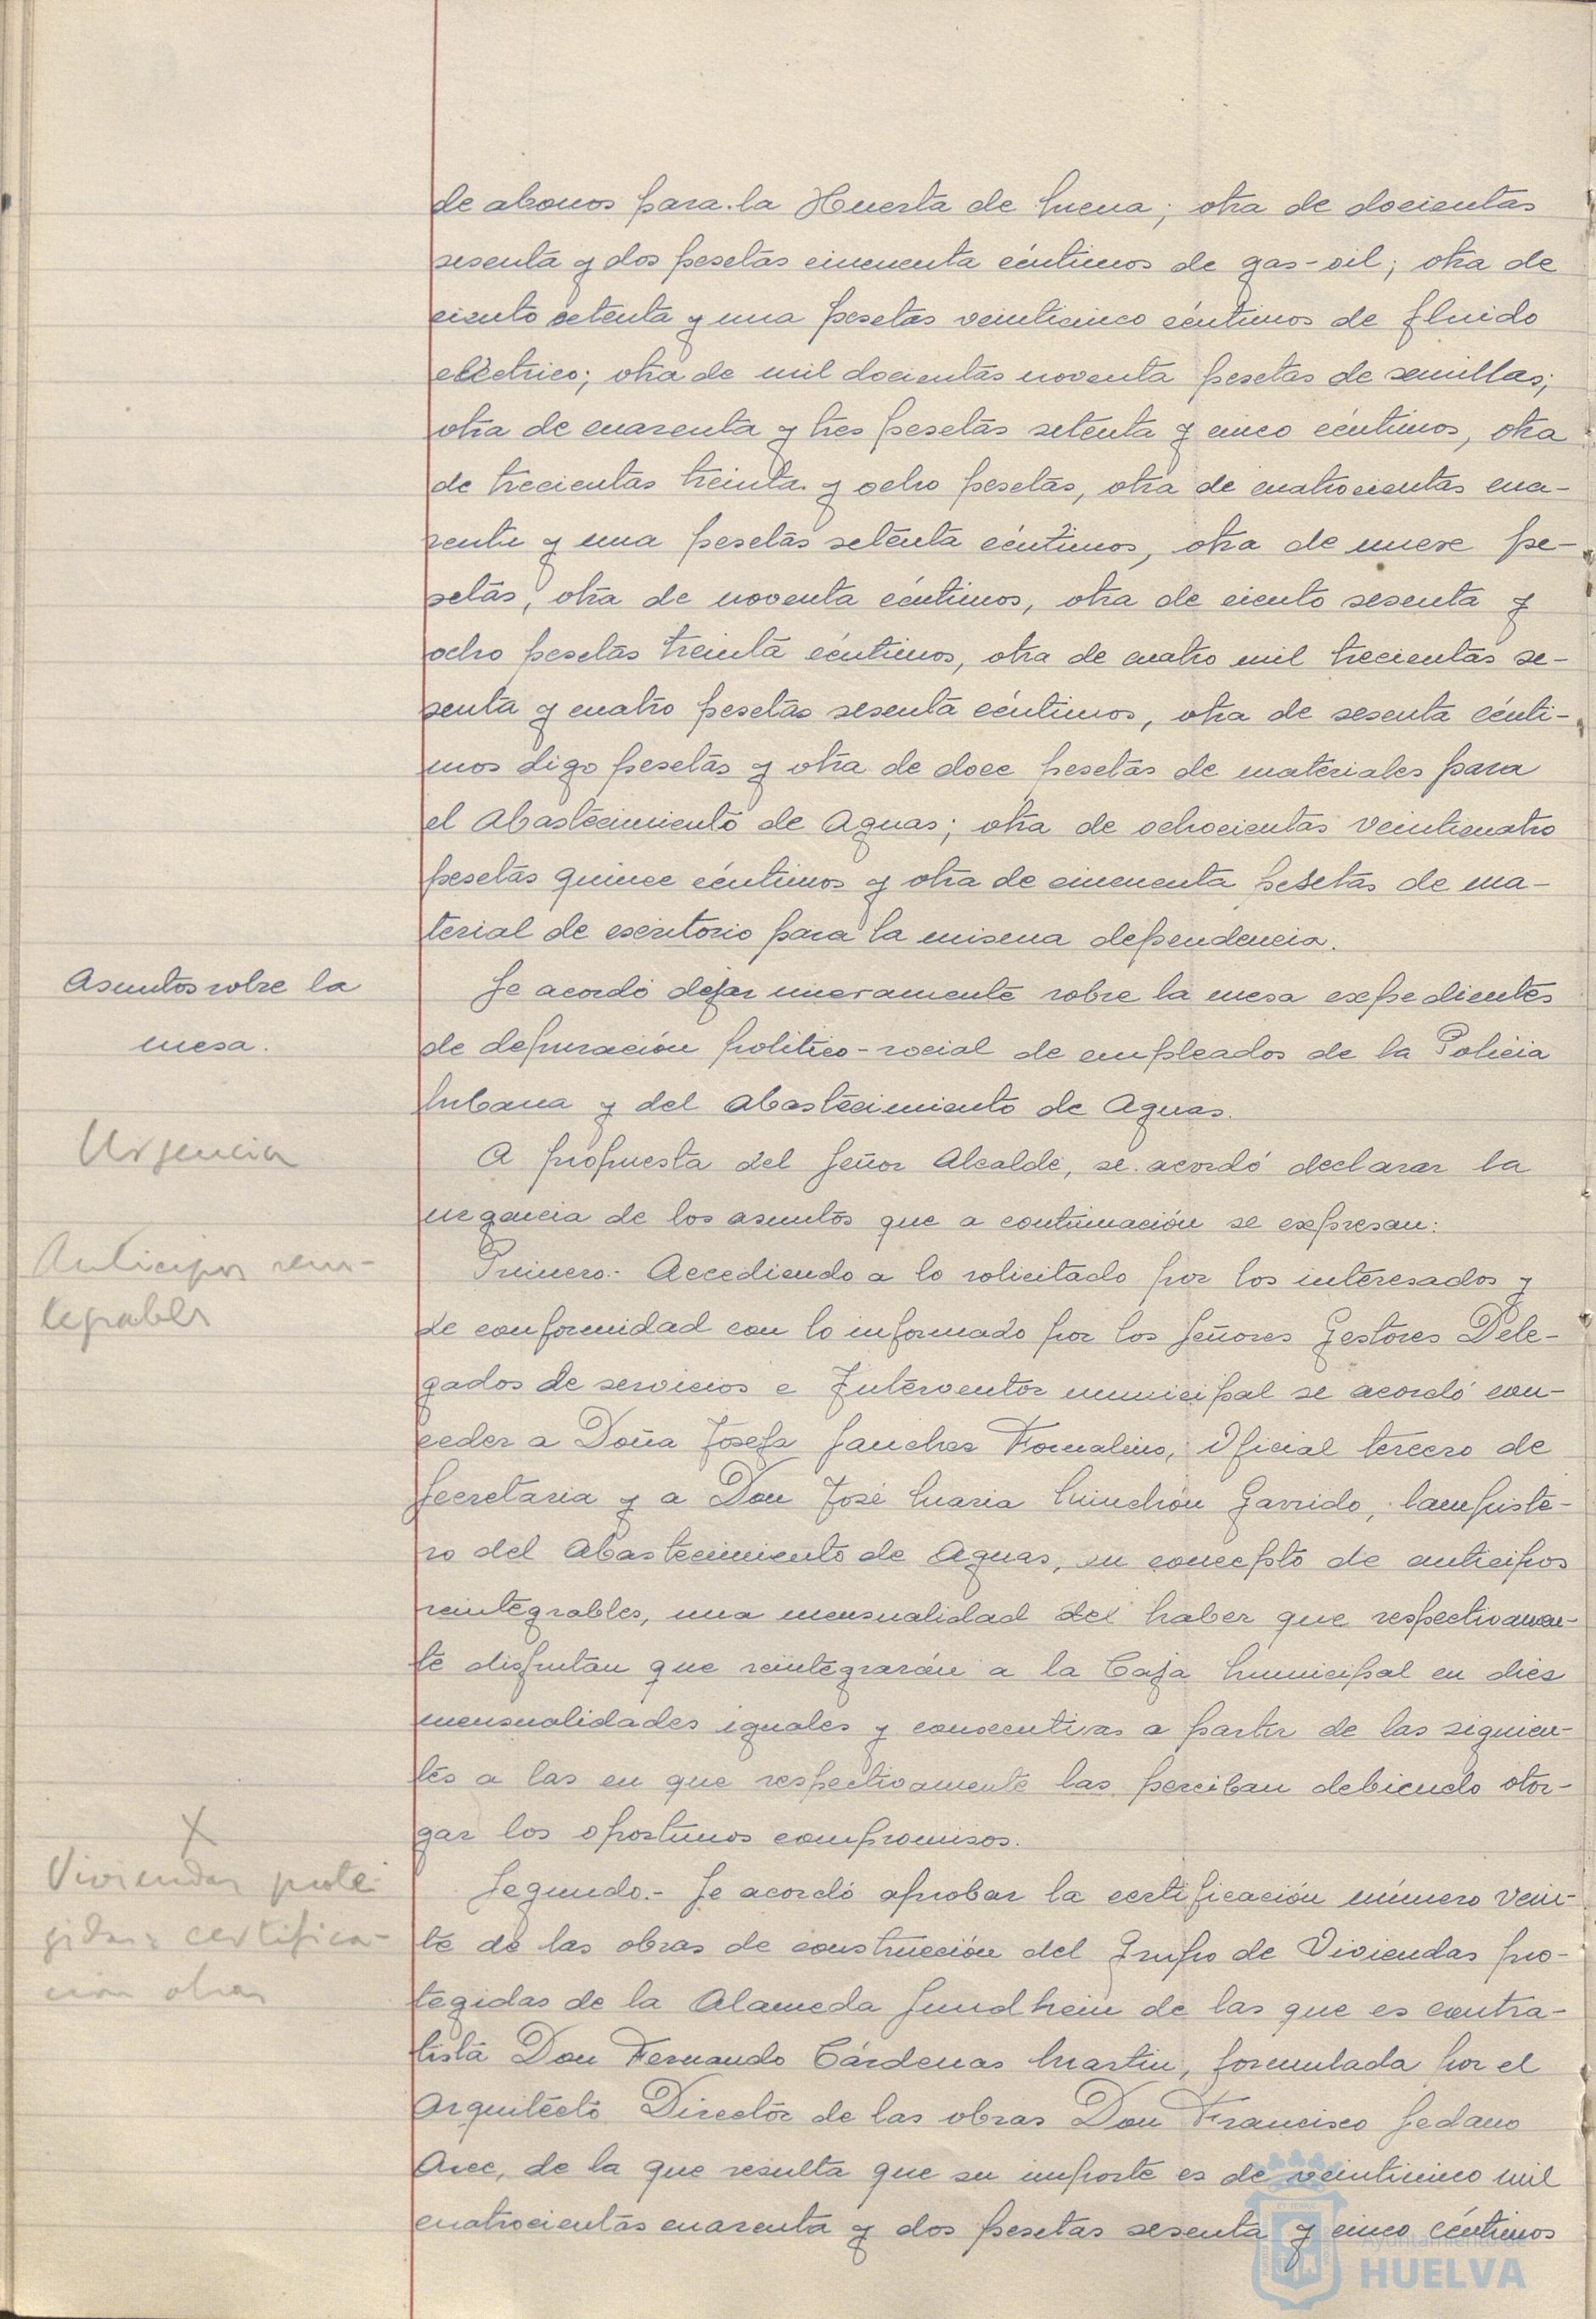 de abonos para la Huerta de Mena; otra de docientas
sesenta y dos pesetas cincuenta céntimos de gas-oil; otra de
ciento setenta y una pesetas veinticinco céntimos de fluido
eléctrico; otra de mil docientas noventa pesetas de semillas;
otra de cuarenta y tres pesetas setenta y cinco céntimos, otra
de trecientas treinta y ocho pesetas, otra de cuatrocientas cua-
renta y una pesetas setenta céntimos, otra de nueve pe-
setas, otra de noventa céntimos, otra de ciento sesenta y
ocho pesetas treinta céntimos, otra de cuatro mil trecientas se-
senta y cuatro pesetas sesenta céntimos, otra de sesenta cénti-
mos digo pesetas y otra de doce pesetas de materiales para
el Abastecimiento de Aguas; otra de ochocientas veinticuatro
pesetas quince céntimos y otra de cincuenta pesetas de ma-
terial de escritorio para la misma dependencia.
Asuntos sobre la
mesa.
Se acordó dejar nuevamente sobre la mesa expedientes
de depuración politico-social de empleados de la Policia
Urbana y del Abastecimiento de Aguas.
Urgencia
A propuesta del Señor Alcalde, se acordó declarar la
urgencia de los asuntos que a continuación se expresan:
Anticipos rein-
tegrables
Primero.- Accediendo a lo solicitado por los interesados y
de conformidad con lo informado por los Señores Gestores Dele-
gados de servicios e Interventor municipal se acordó con-
ceder a Doña Josefa Sanchez Tornalino, Oficial tercero de
Secretaria y a Don José Maria Minchón Garrido, lampiste-
ro del Abastecimiento de Aguas, en concepto de anticipos
reintegrables, una mensualidad del haber que respectivamen-
te disfrutan que reintegrarán a la Caja Municipal en diez
mensualidades iguales y consecutivas a partir de las siguien-
tes a las en que respectivamente las perciban debiendo otor-
gar los oportunos compromisos.
X
Viviendas prote-
gidas: certifica-
cion obras
Segundo.- Se acordó aprobar la certificación número vein-
te de las obras de construcción del Grupo de Viviendas pro-
tegidas de la Alameda Sundhein de las que es contra-
tista Don Fernando Cárdenas Martin, formulada por el
Arquitecto Director de las obras Don Francisco Sedano
Arce, de la que resulta que su importe es de veinticinco mil
cuatrocientas cuarenta y dos pesetas sesenta y cinco céntimos
Ayuntamiento de
HUELVA